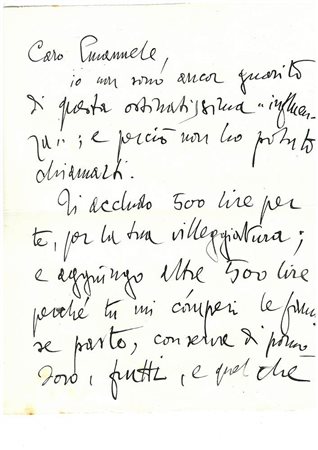 Caro Emanuele,
io non sono ancor guarito
di questa ostinatissima "influen-
za"; e perciò non ho potuto
chiamarti.
Ti accludo 500 lire per
te, per la tua villeggiatura;
e aggiungo altre 500 lire
perché tu mi cómperi le famo
se paste, conserva di pomo
doro, frutti, e quel che